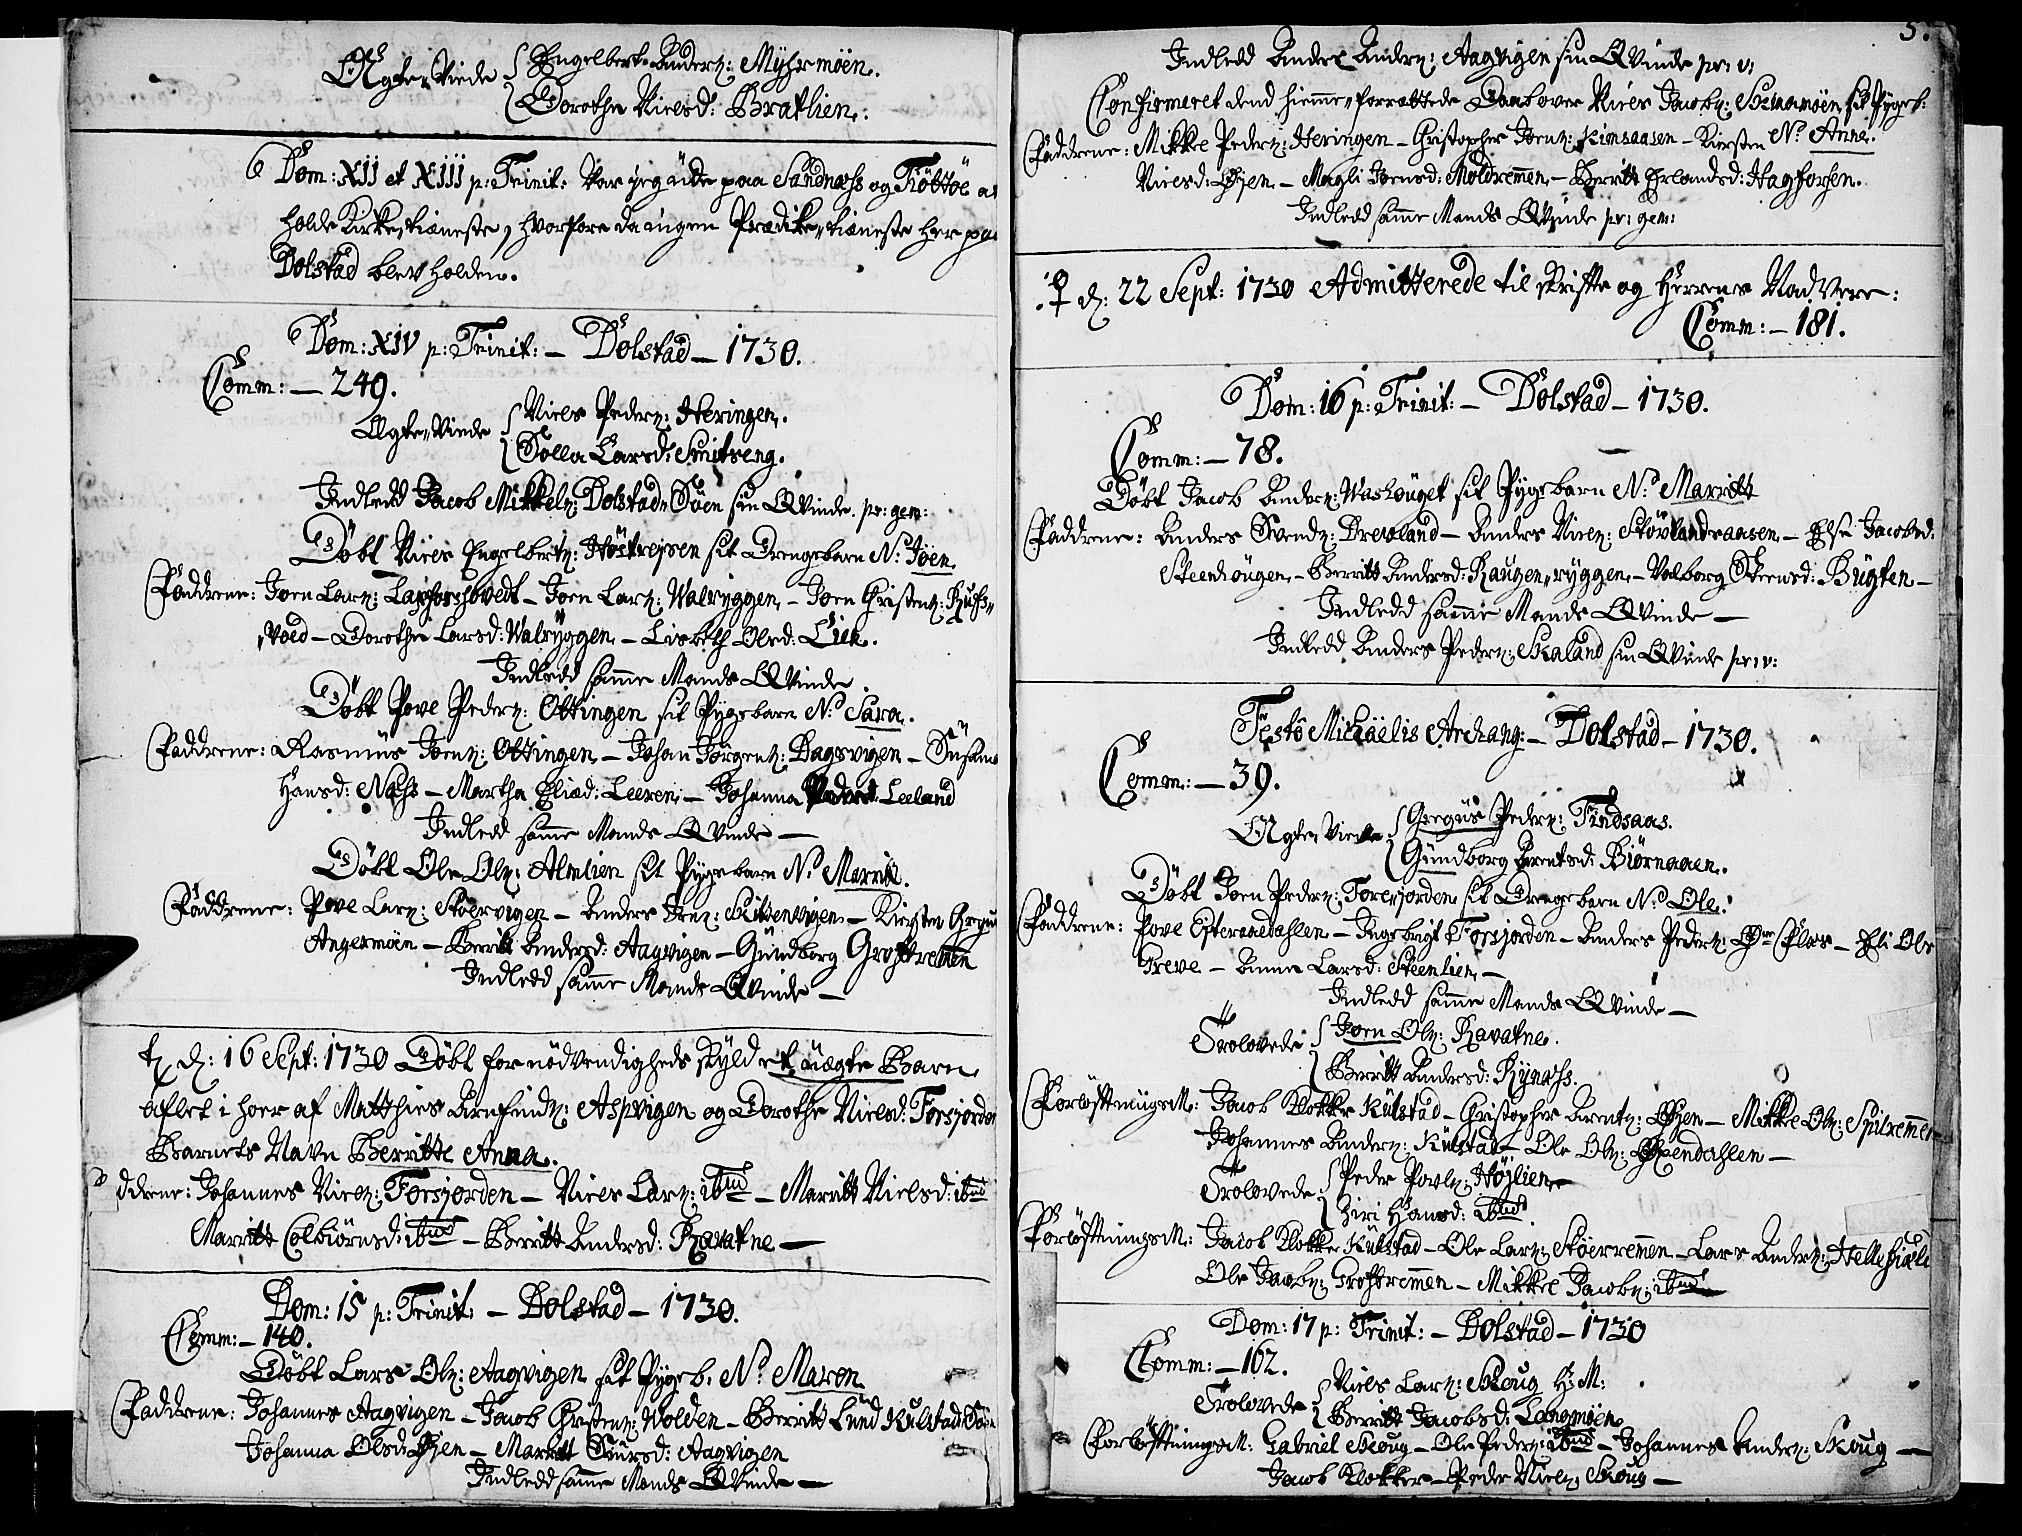 Ægte Viede { Engelbert Anderz: Myhrmöen.
{ Dorothe Nielsd: Bratlien.
Dom: XII et XIII p: Trinit: Var jeg ude paa Sandnæss og Tiöttöe at
holde Kirke tieneste, hvorfore da ingen Prædike tieneste her paa
Dolstad blev holden.
Dom: XIV p: Trinit: – Dolstad – 1730.
Comm: – 249.
Ægte Viede { Niels Pederz: Heringen.
{ Solla Larsd: Smitseng.
Indledd Jacob Mikkelz: Dolstad Söen sin Qvinde. pr: gem:
Döbt Niels Engelbertz: sit Drengebarn N: Joen
Faddrene: Joen Larz: Laxforshovedt – Joen Larz: Walryggen – Joen Christenz: Russ
Voed – Dorothe Larsd: Walryggen – Lisbeth Olsd: Lien.
Indledd samme Mands Qvinde
Döbt Pove Pederz: Ottingen sit Pygebarn N: Sara.
Faddrene: Rasmus Joenz: Ottingen – Johan Jörgenz: Dagsvigen – Susanna
Hansd: Næss – Martha Eliæd: Leeren – Johanna Pedersd: Leeland
Indledd samme Mands Qvinde –
Döbt Ole Olz: Almlien sit Pygebarn N: Marritt.
Faddrene: Pove Larz: Stoervigen – Anders Jenz: Skitsenvigen – Kirsten Gregus
Angermöen – Berritt Andersd: Aagvigen – Gundborg Groftremmen
Indledd samme Mands Qvinde –
d: 16 Sept: 1730 Döbt for nödvendigheds skyld et uægte Barn
aflet i hoer af Matthies Arnfindz: Aspvigen og Dorothe Nielsd: Forsjorden
Barnets Navn Berritte Anna.
ddrene: Johannes Nielz: Forsjorden – Niels Larz: ibid – Maritt Nielsd: ibid
Marritt Colbiörnsd: ibid – Berritt Andersd: Ravatne –
Dom: 15 p: Trinit: – Dolstad – 1730.
Comm: – 140.
Döbt Lars Olz: Aagvigen sit Pygeb. N: Maron
Faddrene: Johannes Aagvigen – Jacob Christenz: Volden – Berritt Lund Kulstad Söen
Johanna Olsd: Øyen – Marritt Siursd: Aagvigen
Indledd samme Mands Qvinde –
5.
Indledd Anders Anderz: Aagvigen sin Qvinde pr: v:
Confirmeret dend hiemme forrettede Daab over Niels Jacobz: sit Pygeb:
Faddrene: Mikkel Pederz: Heringen – Christopher Joenz: Kimsaasen – Kirsten N: Anne.
Nielsd: Øyen – Magli Joensd: Moldremmen – Berritt Erlandsd: Hagforsen.
Indledd samme Mands Qvinde pr: gem:
♀ d: 22 Sept: 1730 Admitterede til skrifte og Herrens Nadvere:
Comm: – 181.
Dom: 16 p: Trinit: – Dolstad – 1730.
Comm: – 78.
Döbt Jacob Anderz: Washouget sit Pygebarn N: Marritt
Faddrene: Anders Svendz: Drevland – Anders Nielz: Stövlandraasen – Else Jacobsd:
Steenhougen – Berritt Andersd: Haugen ryggen – Valborg Steensd: Bugten –
Indledd samme Mands Qvinde –
Indledd Anders Pederz: Skaland sin Qvinde pr: v:
Festo Michaëlis Archang: – Dolstad – 1730.
Comm: – 39.
Ægte Viede { Gregus Pederz: Findsaas.
{ Gundborg Berntsd: Biörnaaen.
Döbt Joen Pederz: Forsjorden sit Drengebarn N: Ole.
Faddrene: Pove Efterandahlen – Ingebrigt Forsjorden – Anders Pederz: – Eli Ols
Greve – Anne Larsd: Steenlien –
Indledd samme Mands Qvinde –
Trolovede { Joen Olz: Ravatne.
{ Berritt Andersd: Rynæss.
Forlöftnings M: Jacob Klokker Kulstad – Christopher Arentz: Øyen – Mikkel Olz: Spilremmen
Johannes Anderz: Kulstad – Ole Olz: Øyendahlen –
Trolovede { Peder Povlz: Højlien
{ Ziri Hansd: ibid.
Forlöftnings M: Jacob Klokker Kulstad – Ole Larz: Stoerremmen – Lars Anderz: Hellesvig
Ole Jacobz: Groftremmen – Mikkel Jacobz: ibid
Dom: 17 p: Trinit: – Dolstad – 1730
Comm: – 162.
Trolovede { Niels Larz: Skoug H: M:
{ Berritt Jacobsd: Langmöen
Forlöftnings M: Gabriel Skoug – Ole Pederz: ibid – Johannes Anderz: Skoug –
Jacob Klokker – Peder Nielz: Skoug –